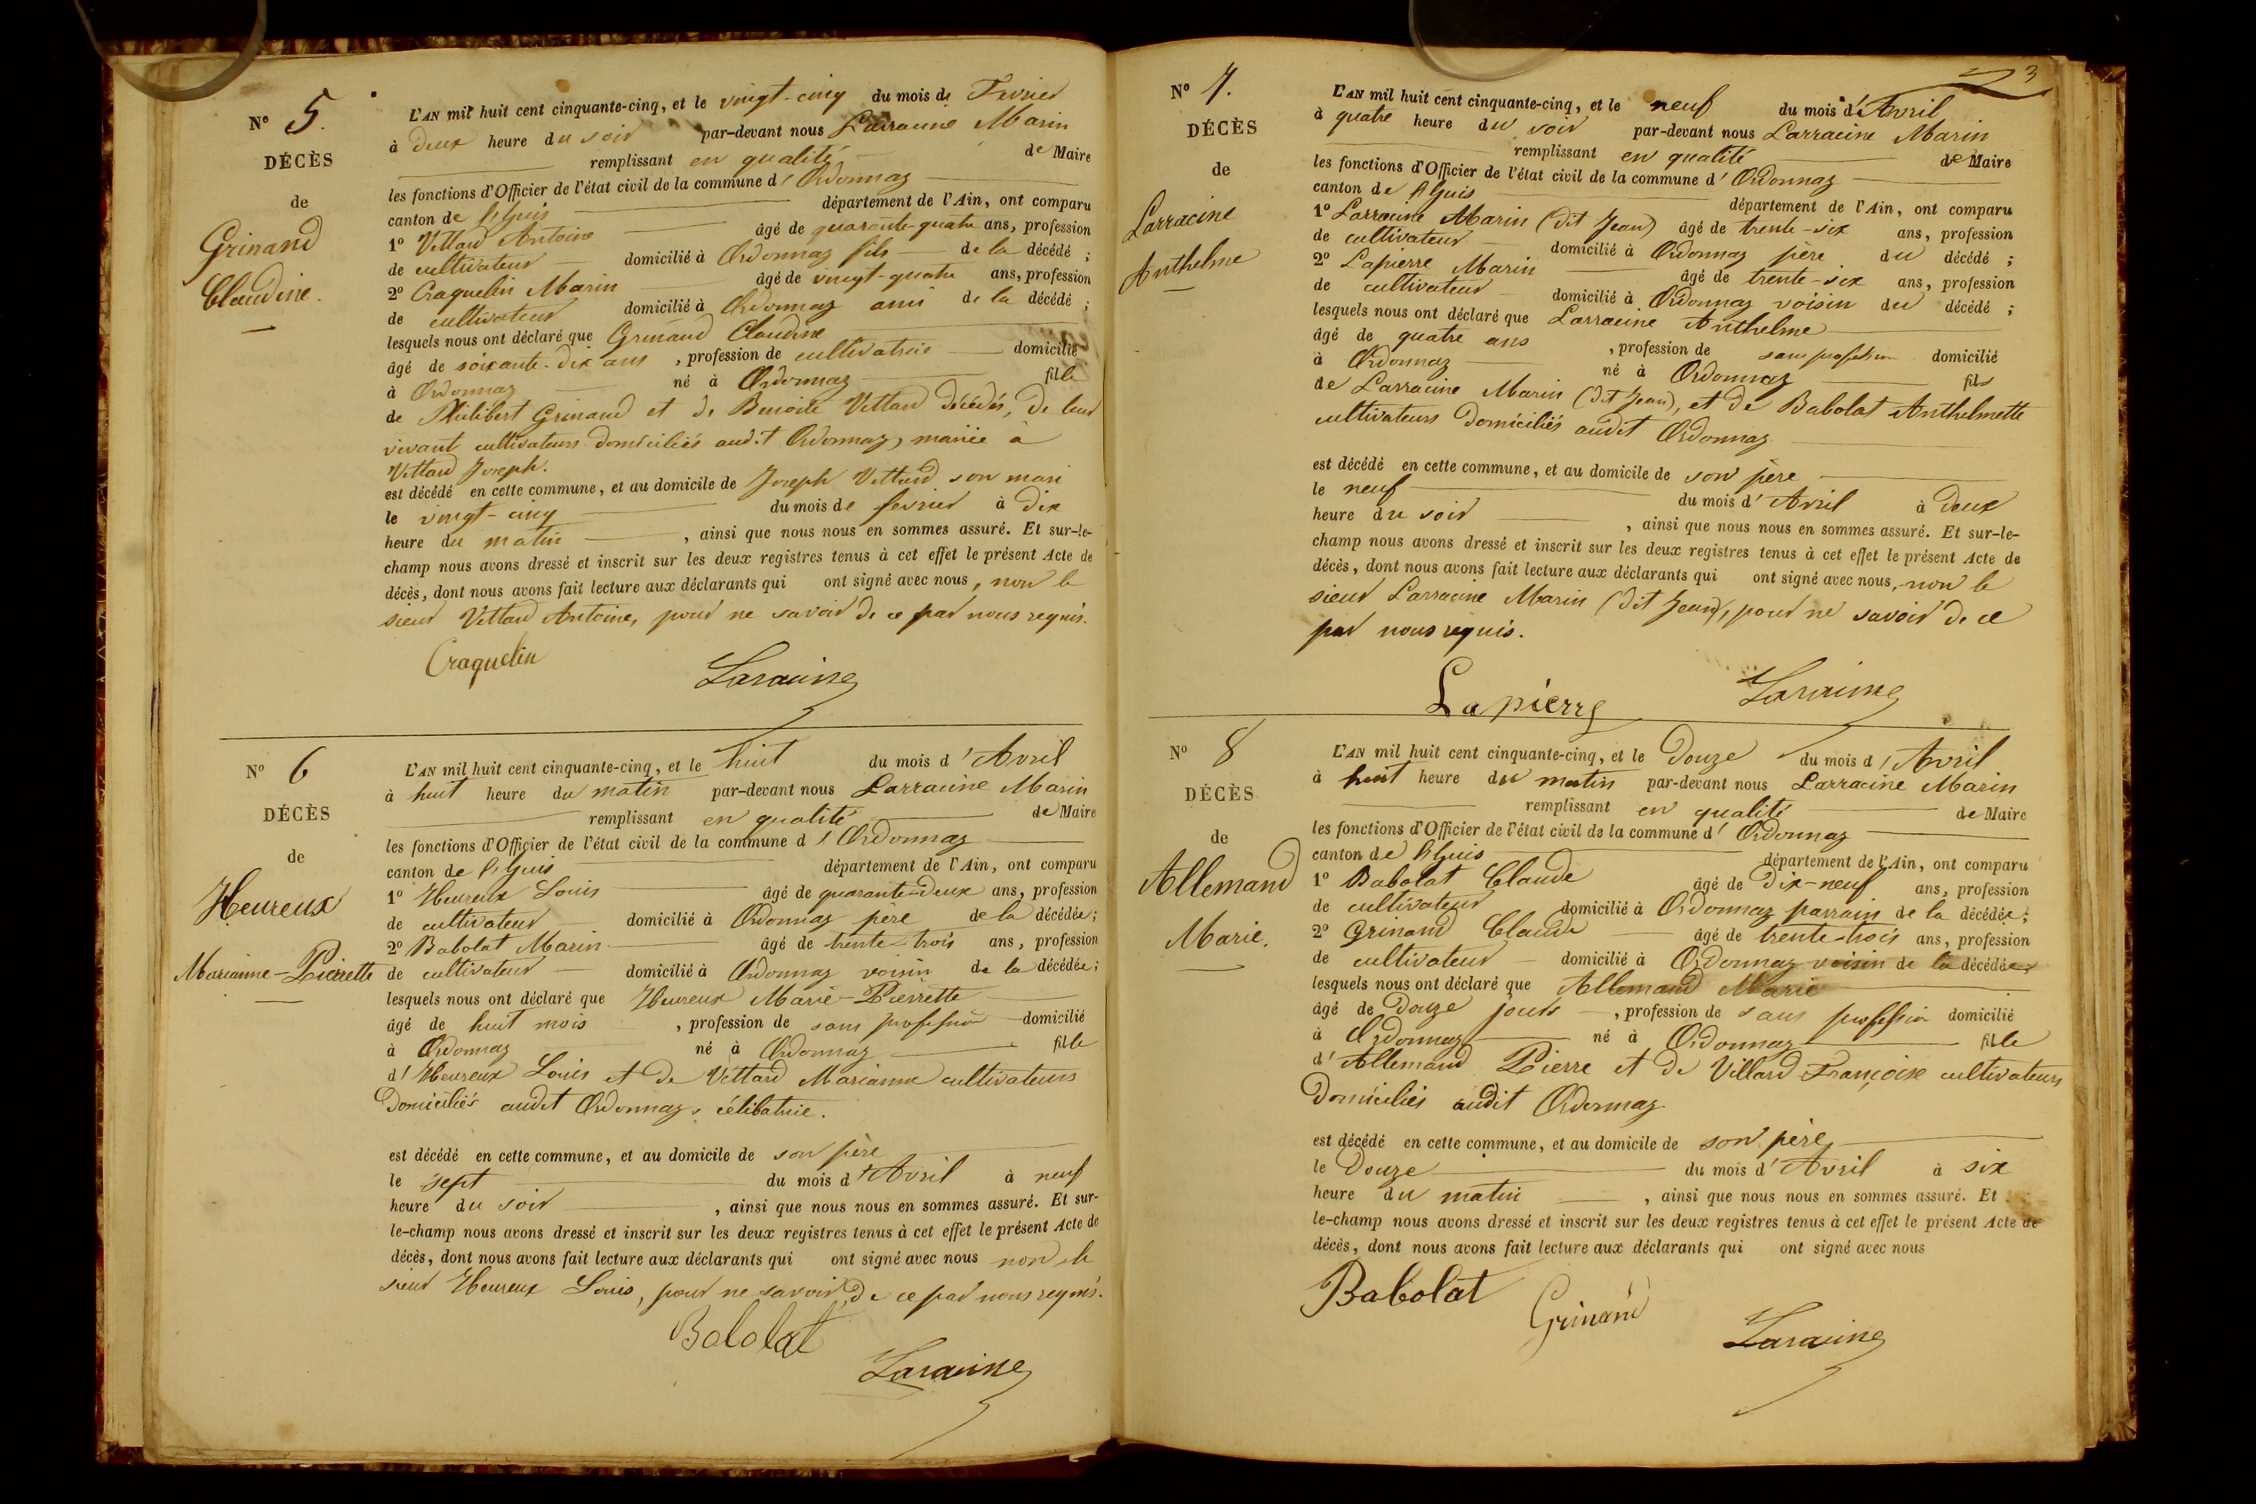 Nº 5.
DÉCÈS
de
Grinand
Claudine.
L'AN mil huit cent cinquante-cinq, et le vingt-cinq du mois de Fevrier
à deux heure du soir par-devant nous Larracine Marin
remplissant en qualité de Maire
les fonctions d'Officier de l'état civil de la commune d' Ordonnaz
canton de Lhuis département de l'Ain, ont comparu
1º Vettard Antoine âgé de quarante-quatre ans, profession
de cultivateur domicilié à Ordonnaz fils de la décédé ;
2º Craquelin Marin âgé de vingt-quatre ans, profession
de cultivateur domicilié à Ordonnaz ami de la décédé ;
lesquels nous ont déclaré que Grinand Claudine
âgé de soixante-dix ans , profession de cultivatrice domicilié
à Ordonnaz né à Ordonnaz fille
de Philibert Grinand et de Benoite Vettard décédés, de leur
vivant cultivateurs domiciliés audit Ordonnaz, mariée à
Vettard Joseph.
est décédé en cette commune, et au domicile de Joseph Vettard son mari
le vingt-cinq du mois de fevrier à dix
heure du matin , ainsi que nous nous en sommes assuré. Et sur-le-
champ nous avons dressé et inscrit sur les deux registres tenus à cet effet le présent Acte de
décès, dont nous avons fait lecture aux déclarants qui ont signé avec nous, non le
sieur Vettard Antoine, pour ne savoir de ce par nous requis.
Craquelin
Laracine
Nº 6
DÉCÈS
de
Heureux
Marianne-Pierrette
L'AN mil huit cent cinquante-cinq, et le huit du mois d' Avril
à huit heure du matin par-devant nous Larracine Marin
remplissant en qualité de Maire
les fonctions d'Officier de l'état civil de la commune d' Ordonnaz
canton de Lhuis département de l'Ain, ont comparu
1º Heureux Louis âgé de quarante-deux ans, profession
de cultivateur domicilié à Ordonnaz pere de la décédée;
2º Babolat Marin âgé de trente-trois ans, profession
de cultivateur domicilié à Ordonnaz voisin de la décédée;
lesquels nous ont déclaré que Heureux Marie-Pierrette
âgé de huit mois , profession de sans profession domicilié
à Ordonnaz né à Ordonnaz fille
d' Heureux Louis et de Vettard Marianne cultivateurs
domiciliés audit Ordonnaz, célibatrie.
est décédé en cette commune, et au domicile de son père
le sept du mois d' Avril à neuf
heure du soir , ainsi que nous nous en sommes assuré. Et sur-
le-champ nous avons dressé et inscrit sur les deux registres tenus à cet effet le présent Acte de
décès, dont nous avons fait lecture aux déclarants qui ont signé avec nous non le
sieur Heureux Louis, pour ne savoir de ce par nous requis.
Babolat
Laracine
3
Nº 7.
DÉCÈS
de
Larracine
Anthelme
L'AN mil huit cent cinquante-cinq, et le neuf du mois d' Avril
à quatre heure du soir par-devant nous Larracine Marin
remplissant en qualité de Maire
les fonctions d'Officier de l'état civil de la commune d' Ordonnaz
canton de Lhuis département de l'Ain, ont comparu
1º Larracine Marin (dit Jean) âgé de trente-six ans, profession
de cultivateur domicilié à Ordonnaz père du décédé ;
2º Lapierre Marin âgé de trente-six ans, profession
de cultivateur domicilié à Ordonnaz voisin du décédé ;
lesquels nous ont déclaré que Larracine Anthelme
âgé de quatre ans , profession de sans profession domicilié
à Ordonnaz né à Ordonnaz fils
de Larracine Marin (dit Jean), et de Babolat Anthelmette
cultivateurs domiciliés audit Ordonnaz
est décédé en cette commune, et au domicile de son père
le neuf du mois d' Avril à deux
heure du soir , ainsi que nous nous en sommes assuré. Et sur-le-
champ nous avons dressé et inscrit sur les deux registres tenus à cet effet le présent Acte de
décès, dont nous avons fait lecture aux déclarants qui ont signé avec nous, non le
sieur Larracine Marin (dit Jean), pour ne savoir de ce
par nous requis.
Lapierre
Laracine
Nº 8
DÉCÈS
de
Allemand
Marie.
L'AN mil huit cent cinquante-cinq, et le Douze du mois d' Avril
à huit heure du matin par-devant nous Larracine Marin
remplissant en qualité de Maire
les fonctions d'Officier de l'état civil de la commune d' Ordonnaz
canton de Lhuis département de l'Ain, ont comparu
1º Babolat Claude âgé de Dix-neuf ans, profession
de cultivateur domicilié à Ordonnaz parrain de la décédée;
2º Grinand Claude âgé de trente-trois ans, profession
de cultivateur domicilié à Ordonnaz voisin de la décédée
lesquels nous ont déclaré que Allemand Marie
âgé de Douze jours , profession de sans profession domicilié
à Ordonnaz né à Ordonnaz fille
d' Allemand Pierre et de Villard Françoise cultivateurs
Domiciliés audit Ordonnaz
est décédé en cette commune, et au domicile de son père
le Douze du mois d' Avril à six
heure du matin , ainsi que nous nous en sommes assuré. Et
le-champ nous avons dressé et inscrit sur les deux registres tenus à cet effet le présent Acte de
décès, dont nous avons fait lecture aux déclarants qui ont signé avec nous
Babolat
Grinand
Laracine